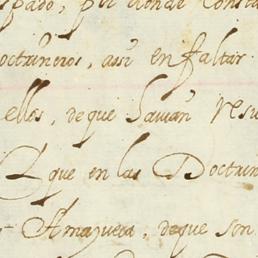 spado, por donde consta
octrineros, assi en faltar
ellos, de que havian resu
Que en las Doctrin
Amazueca, de que son